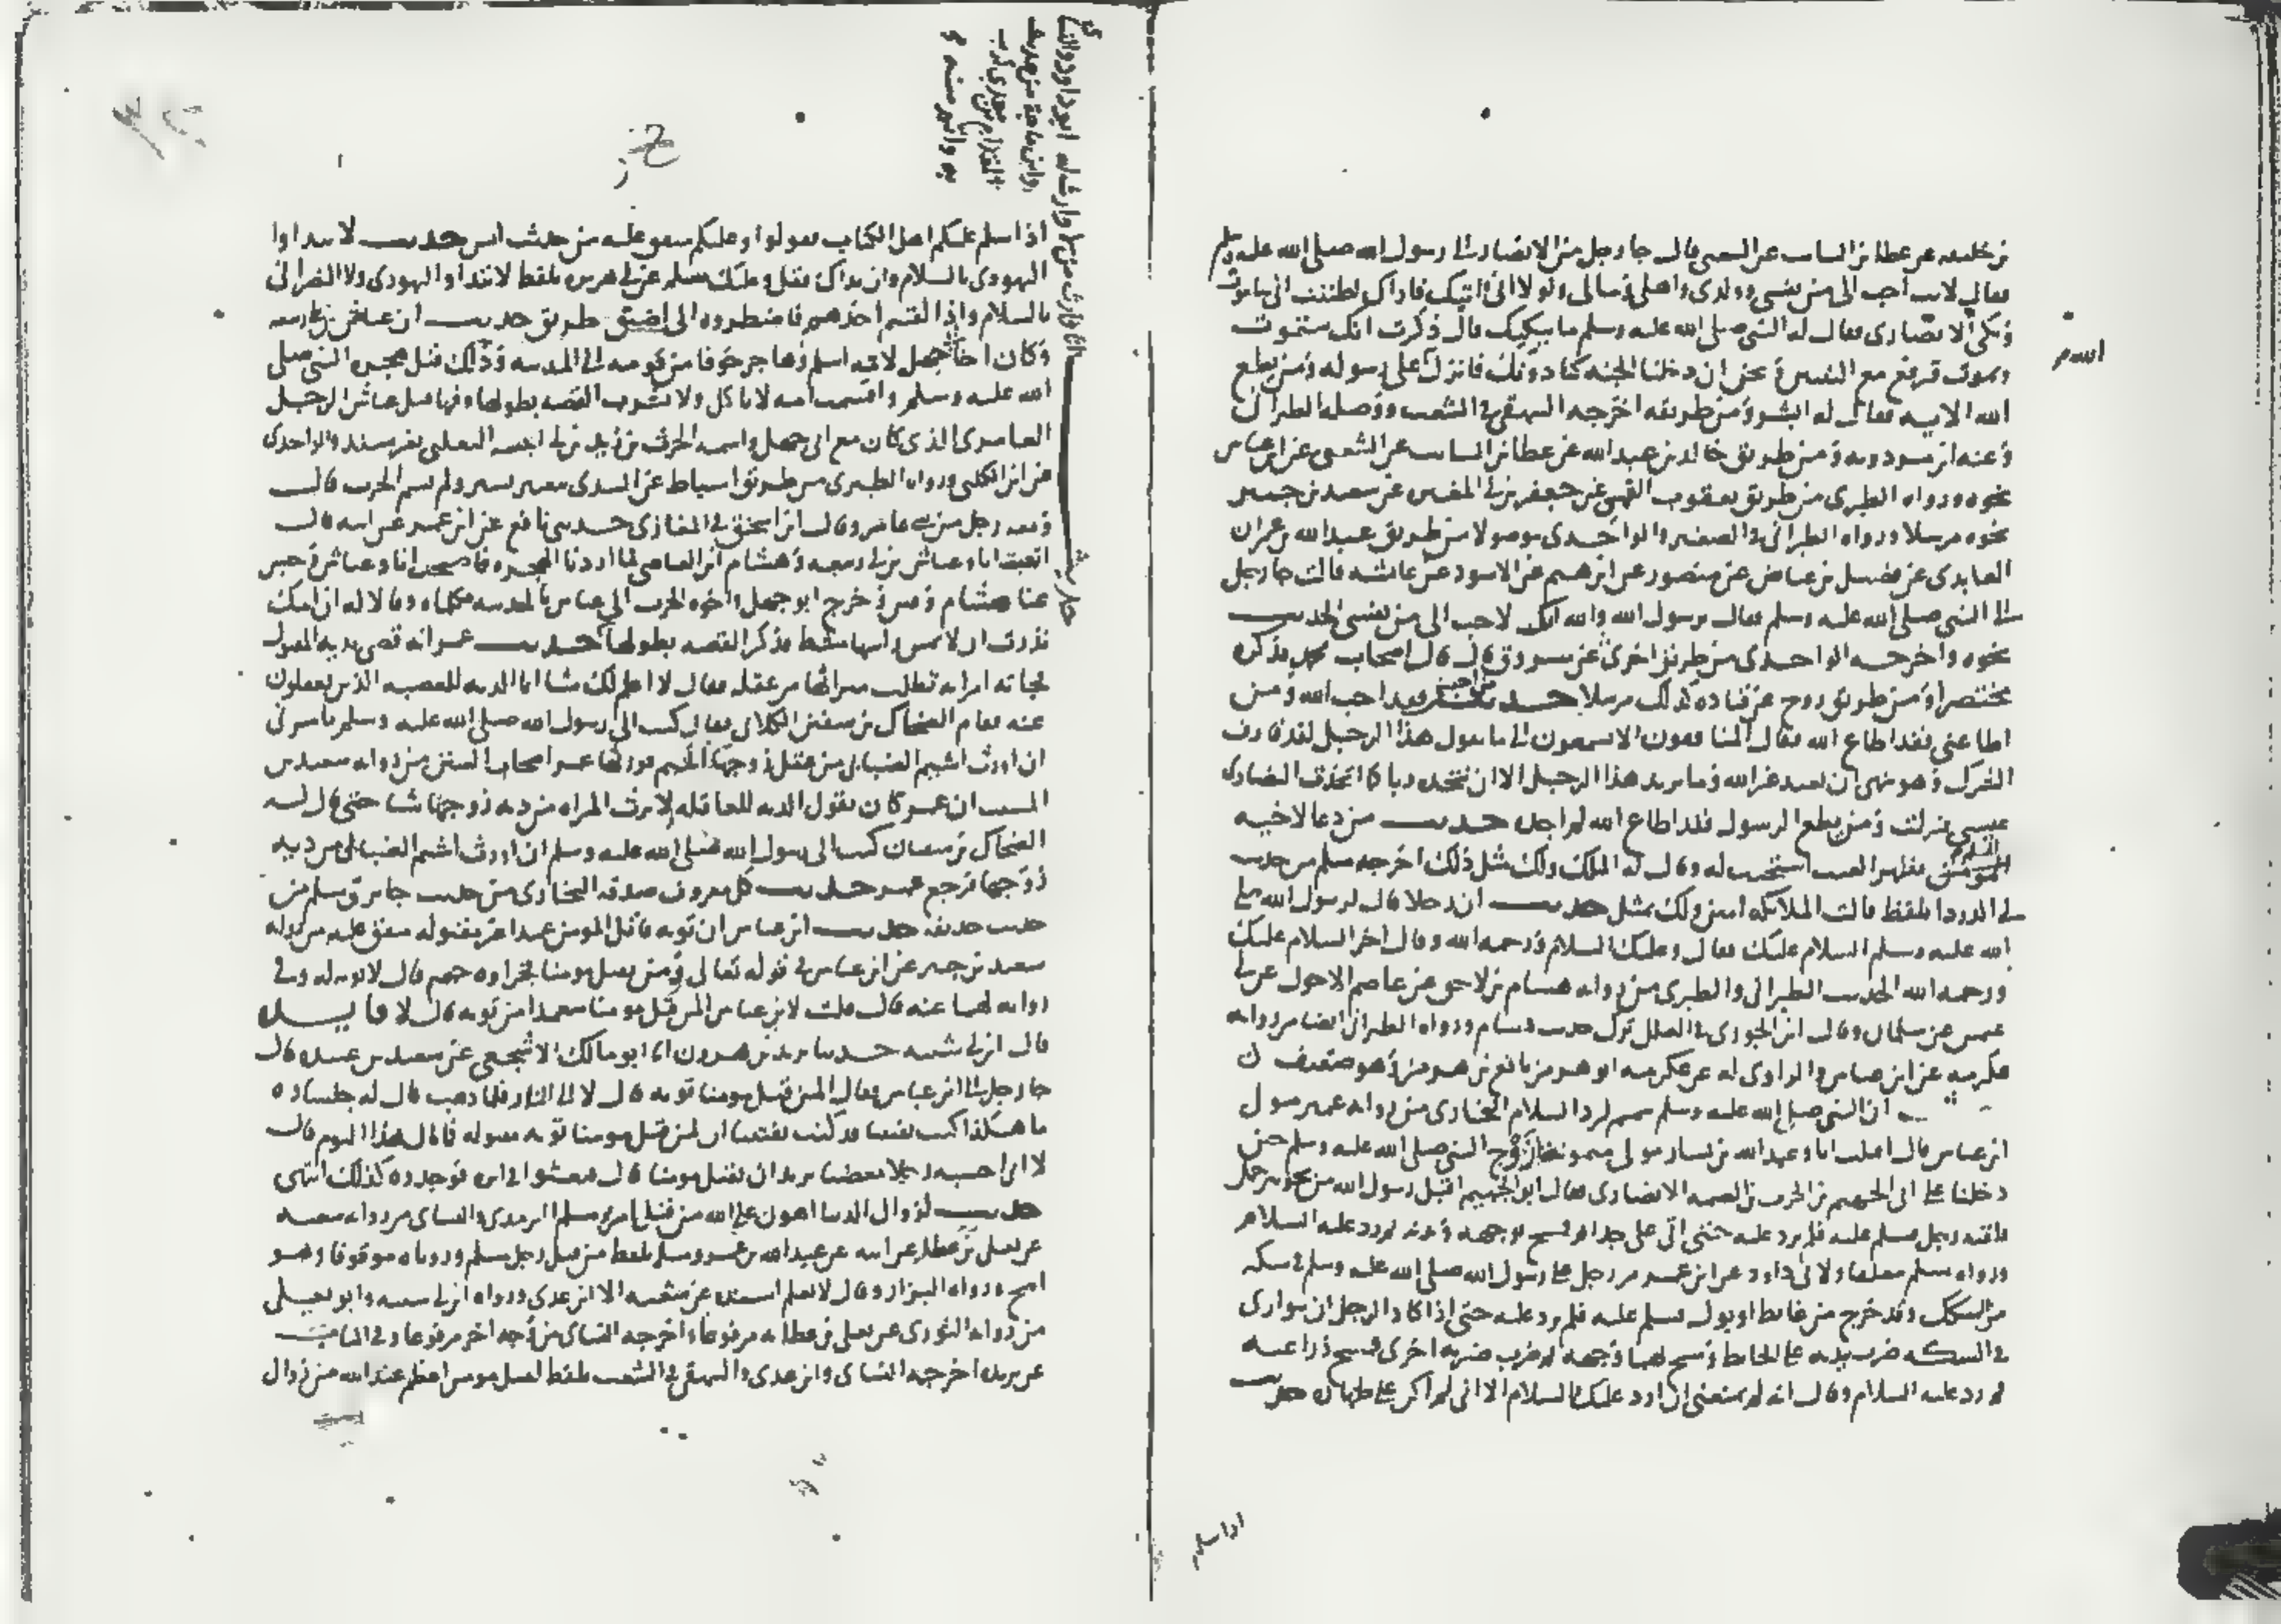 بن خليفه عن عطا بن السايب عن الشعبي قال جا رجل من الانصار الى رسول الله صلى الله عليه وسلم
فقال لانت احب الي من نفسي وولدي واهلي ومالي ولولا اني اتيك فاراك لظننت اني ساموت
وبكى الانصاري فقال له النبي صلى الله عليه وسلم ما يبكيك قال ذكرت انك ستموت
ونموت فترفع مع النبيين ونحن ان دخلنا الجنه كنا دونك فانزل الله على رسوله ومن يطع
الله الايه فقال له ابشر ومن طريقه اخرجه البيهقي في الشعب ووصله الطبراني
وعنه ابن مردويه ومن طريق خالد بن عبد الله عن عطا بن السايب عن الشعبي عن ابن عباس
نحوه ورواه الطبري من طريق يعقوب القمي عن جعفر بن ابي المغيره عن سعيد بن جبير
نحوه مرسلا ورواه الطبراني في الصغير والواحدي موصولا من طريق عبد الله بن عمران
العابدي عن فضيل بن عياض عن منصور عن ابرهيم عن الاسود عن عايشه قالت جا رجل
الى النبي صلى الله عليه وسلم فقال يرسول الله والله انك لاحب الي من نفسي الحديث
نحوه واخرجه الواحدي من طريق اخرى عن مسروق قال قال اصحاب محمد فذكره
مختصرا ومن طريق روح عن قتاده كذلك مرسلا حديث من احبني فقد احب الله ومن
اطاعني فقد اطاع الله فقال المنافقون الا تسمعون الى ما يقول هذا الرجل لقد قارف
الشرك وهو نهى ان نعبد غير الله وما يريد هذا الرجل الا ان نتخذه ربا كما اتخذت النصارى
عيسى فنزلت ومن يطع الرسول فقد اطاع الله لم اجده حديث من دعا لاخيه
المسلم بظهر الغيب استجيب له وقال له الملك ولك مثل ذلك اخرجه مسلم من حديث
ابي الدردا بلفظ قالت الملايكه امين ولك بمثل حديث ان رجلا قال لرسول الله صلى
الله عليه وسلم السلام عليك فقال وعليك السلام ورحمه الله وقال اخر السلام عليك
ورحمه الله الحديث الطبراني والطبري من روايه هشام بن لاحق عن عاصم الاحول عن ابي
عثمن عن سلمان وقال ابن الجوزي في العلل ترك حديث هشام ورواه الطبراني ايضا من روايه
عكرمه عن ابن عباس والراوي له عن عكرمه ابو هرمز نافع بن هرمز وهو ضعيف
ان النبي صلى الله عليه وسلم تيمم لرد السلام البخاري من روايه عمير مولى
ابن عباس قال اقبلت انا وعبد الله بن يسار مولى ميمونه زوج النبي صلى الله عليه وسلم حتى
دخلنا على ابي الجهيم بن الحرث بن الصمه الانصاري فقال ابو الجهيم اقبل رسول الله من نحو بير جمل
فلقيه رجل فسلم عليه فلم يرد عليه حتى اتى على جدار فمسح بوجهه ويديه ثم رد عليه السلام
ورواه مسلم معلقا ولابي داود عن ابن عمر مر رجل على رسول الله صلى الله عليه وسلم في سكه
من السكك وقد خرج من غايط او بول فسلم عليه فلم يرد عليه حتى اذا كاد الرجل ان يتوارى
في السكه ضرب بيديه على الحايط ومسح بهما وجهه ثم ضرب ضربه اخرى فمسح ذراعيه
ثم رد عليه السلام وقال انه لم يمنعني ان ارد عليك السلام الا اني لم اكن على طهر حديث
اذا سلم
اذا سلم عليكم اهل الكتاب فقولوا وعليكم متفق عليه من حديث انس حديث لا تبداوا
اليهودي بالسلام وان بداك فقل وعليك مسلم عن ابي هريره بلفظ لا تبداوا اليهودي ولا النصراني
بالسلام واذا لقيتم احدهم فاضطروه الى اضيق طريق حديث ان عياش بن ابي ربيعه
وكان اخا ابي جهل لامه اسلم وهاجر خوفا من قومه الى المدينه وذلك قبل هجره النبي صلى
الله عليه وسلم واقسمت امه لا تاكل ولا تشرب القصه بطولها وفيها قتل عياش الرجل
العامري الذي كان مع ابي جهل واسمه الحرث بن زيد بن ابي انيسه الثعلبي بغير سند والواحدي
عن ابن الكلبي ورواه الطبري من طريق اسباط عن السدي بتغيير يسير ولم يسم الحرث قال
ومعه رجل من بني عامر وقال ابن اسحق في المغازي حدثني نافع عن ابن عمر عن ابيه قال
اتعدت انا وعياش بن ابي ربيعه وهشام ابن العاصي لما اردنا الهجره فاصبحت انا وعياش وحبس
عنا هشام وفتن وخرج ابو جهل واخوه الحرث الى عياش بالمدينه فكلماه وقالا له ان امك
نذرت ان لا يمس راسها مشط فذكر القصه بطولها حديث عمر انه قضى بديه المقتول
فجاته امراته تطلب ميراثها من عقله فقال لا اعلم لك شيا انما الديه للعصبه الذين يعقلون
عنه فقام الضحاك بن سفين الكلابي فقال كتب الي رسول الله صلى الله عليه وسلم يامرني
ان اورث امراه اشيم الضبابي من عقل زوجها اشيم فورثها عمر اصحاب السنن من روايه سعيد بن
المسيب ان عمر كان يقول الديه للعاقله لا ترث المراه من ديه زوجها شيا حتى قال له
الضحاك بن سفيان كتب الي رسول الله صلى الله عليه وسلم ان اورث امراه اشيم الضبابي من ديه
زوجها فرجع عمر حديث كل معروف صدقه البخاري من حديث جابر ومسلم من
حديث حذيفه حديث ابن عباس ان توبه قاتل المومن عمدا غير مقبوله متفق عليه من روايه
سعيد بن جبير عن ابن عباس في قوله تعالى ومن يقتل مومنا فجزاوه جهنم قال لا توبه له وفي
روايه لهما عنه قال قلت لابن عباس المن قتل مومنا متعمدا من توبه قال لا فايده
قال ابن ابي شيبه حدثنا يزيد بن هرون انا ابو مالك الاشجعي عن سعد بن عبيده قال
جا رجل الى ابن عباس فقال المن قتل مومنا توبه قال لا الا النار فلما ذهب قال له جلساوه
ما هكذا كنت تفتينا قد كنت تفتينا ان لمن قتل مومنا توبه مقبوله فما بال هذا اليوم قال
لا اني احسبه رجلا مغضبا يريد ان يقتل مومنا قال فبعثوا في اثره فوجدوه كذلك انتهى
حديث لزوال الدنيا اهون على الله من قتل امرئ مسلم الترمذي والنساي من روايه شعبه
عن يعلى بن عطا عن ابيه عن عبد الله بن عمرو بلفظ من قتل رجل مسلم وروياه موقوفا وهو
اصح ورواه البزار وقال لا نعلم اسنده عن شعبه الا ابن عدي ورواه ابن ابي شيبه وابو يعلى
من روايه الثوري عن يعلى بن عطا به مرفوعا واخرجه النساي من وجه اخر مرفوعا وفي الباب
عن بريده اخرجه النساي وابن عدي والبيهقي في الشعب بلفظ لقتل مومن اعظم عند الله من زوال
حديث
انا وارث من لا وارث له ابو داود والنساي
وابن ماجة من حديث
المقدام بن معدي كرب
به واتم منه